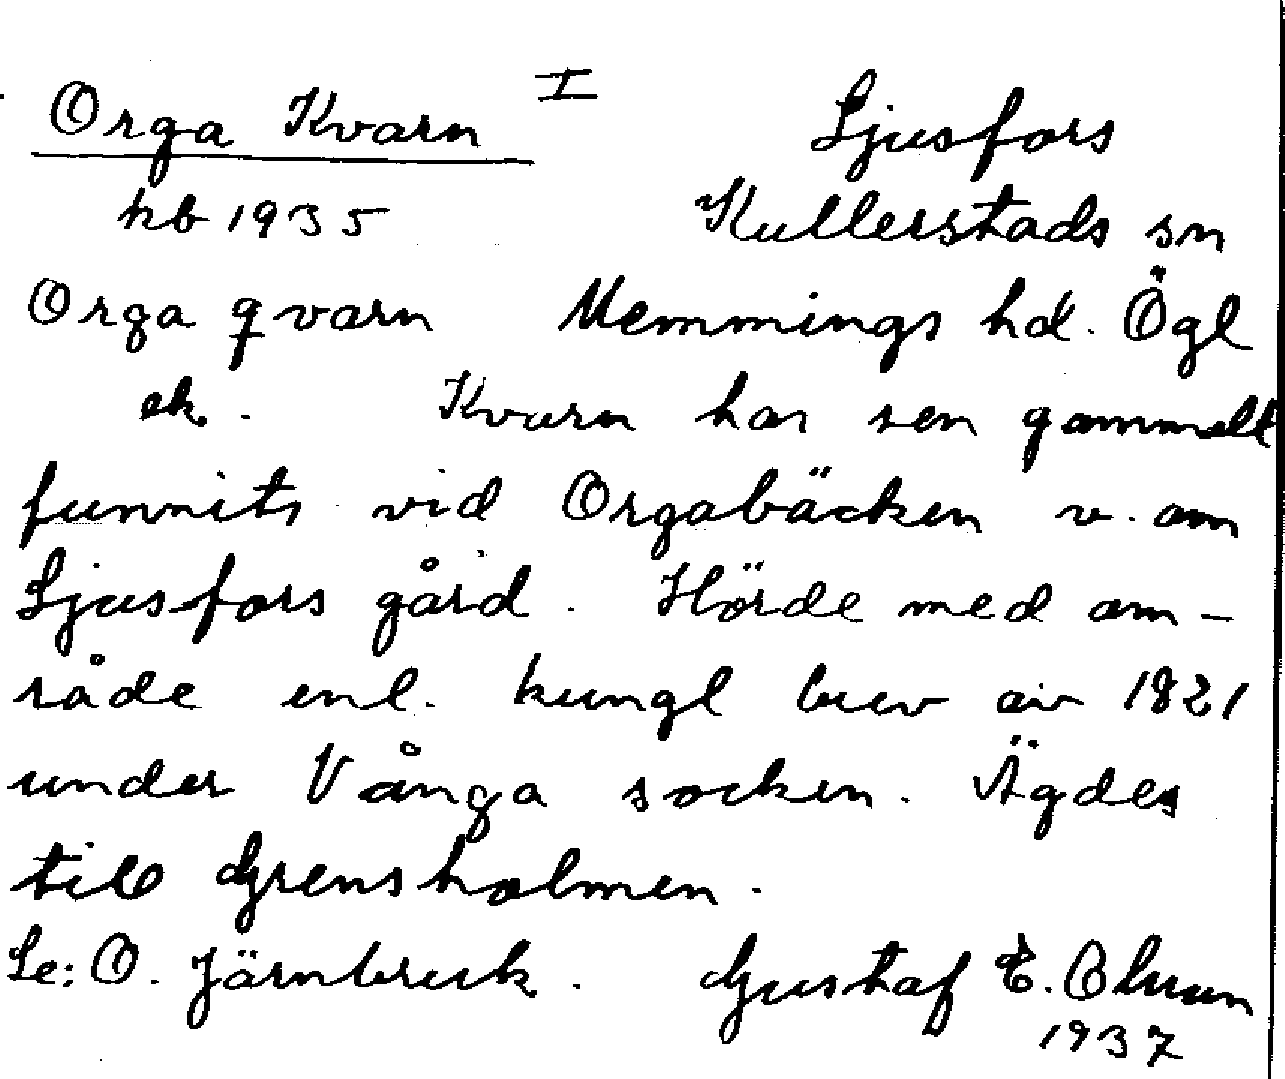 Orga Kvarn I Ljusfors
kb 1935 Kullerstads sn
Orga qvarn Memmings hd. Ögl
ek. Kvarn har sen gammalt
funnits vid Orgabäcken v. om
Ljusfors gård. Hörde med om-
råde enl. kungl brev av 1821
under Vånga socken. Ägdes
till Grensholmen.
Se: O. Järnbruk. Gustaf E. Olsson
1937